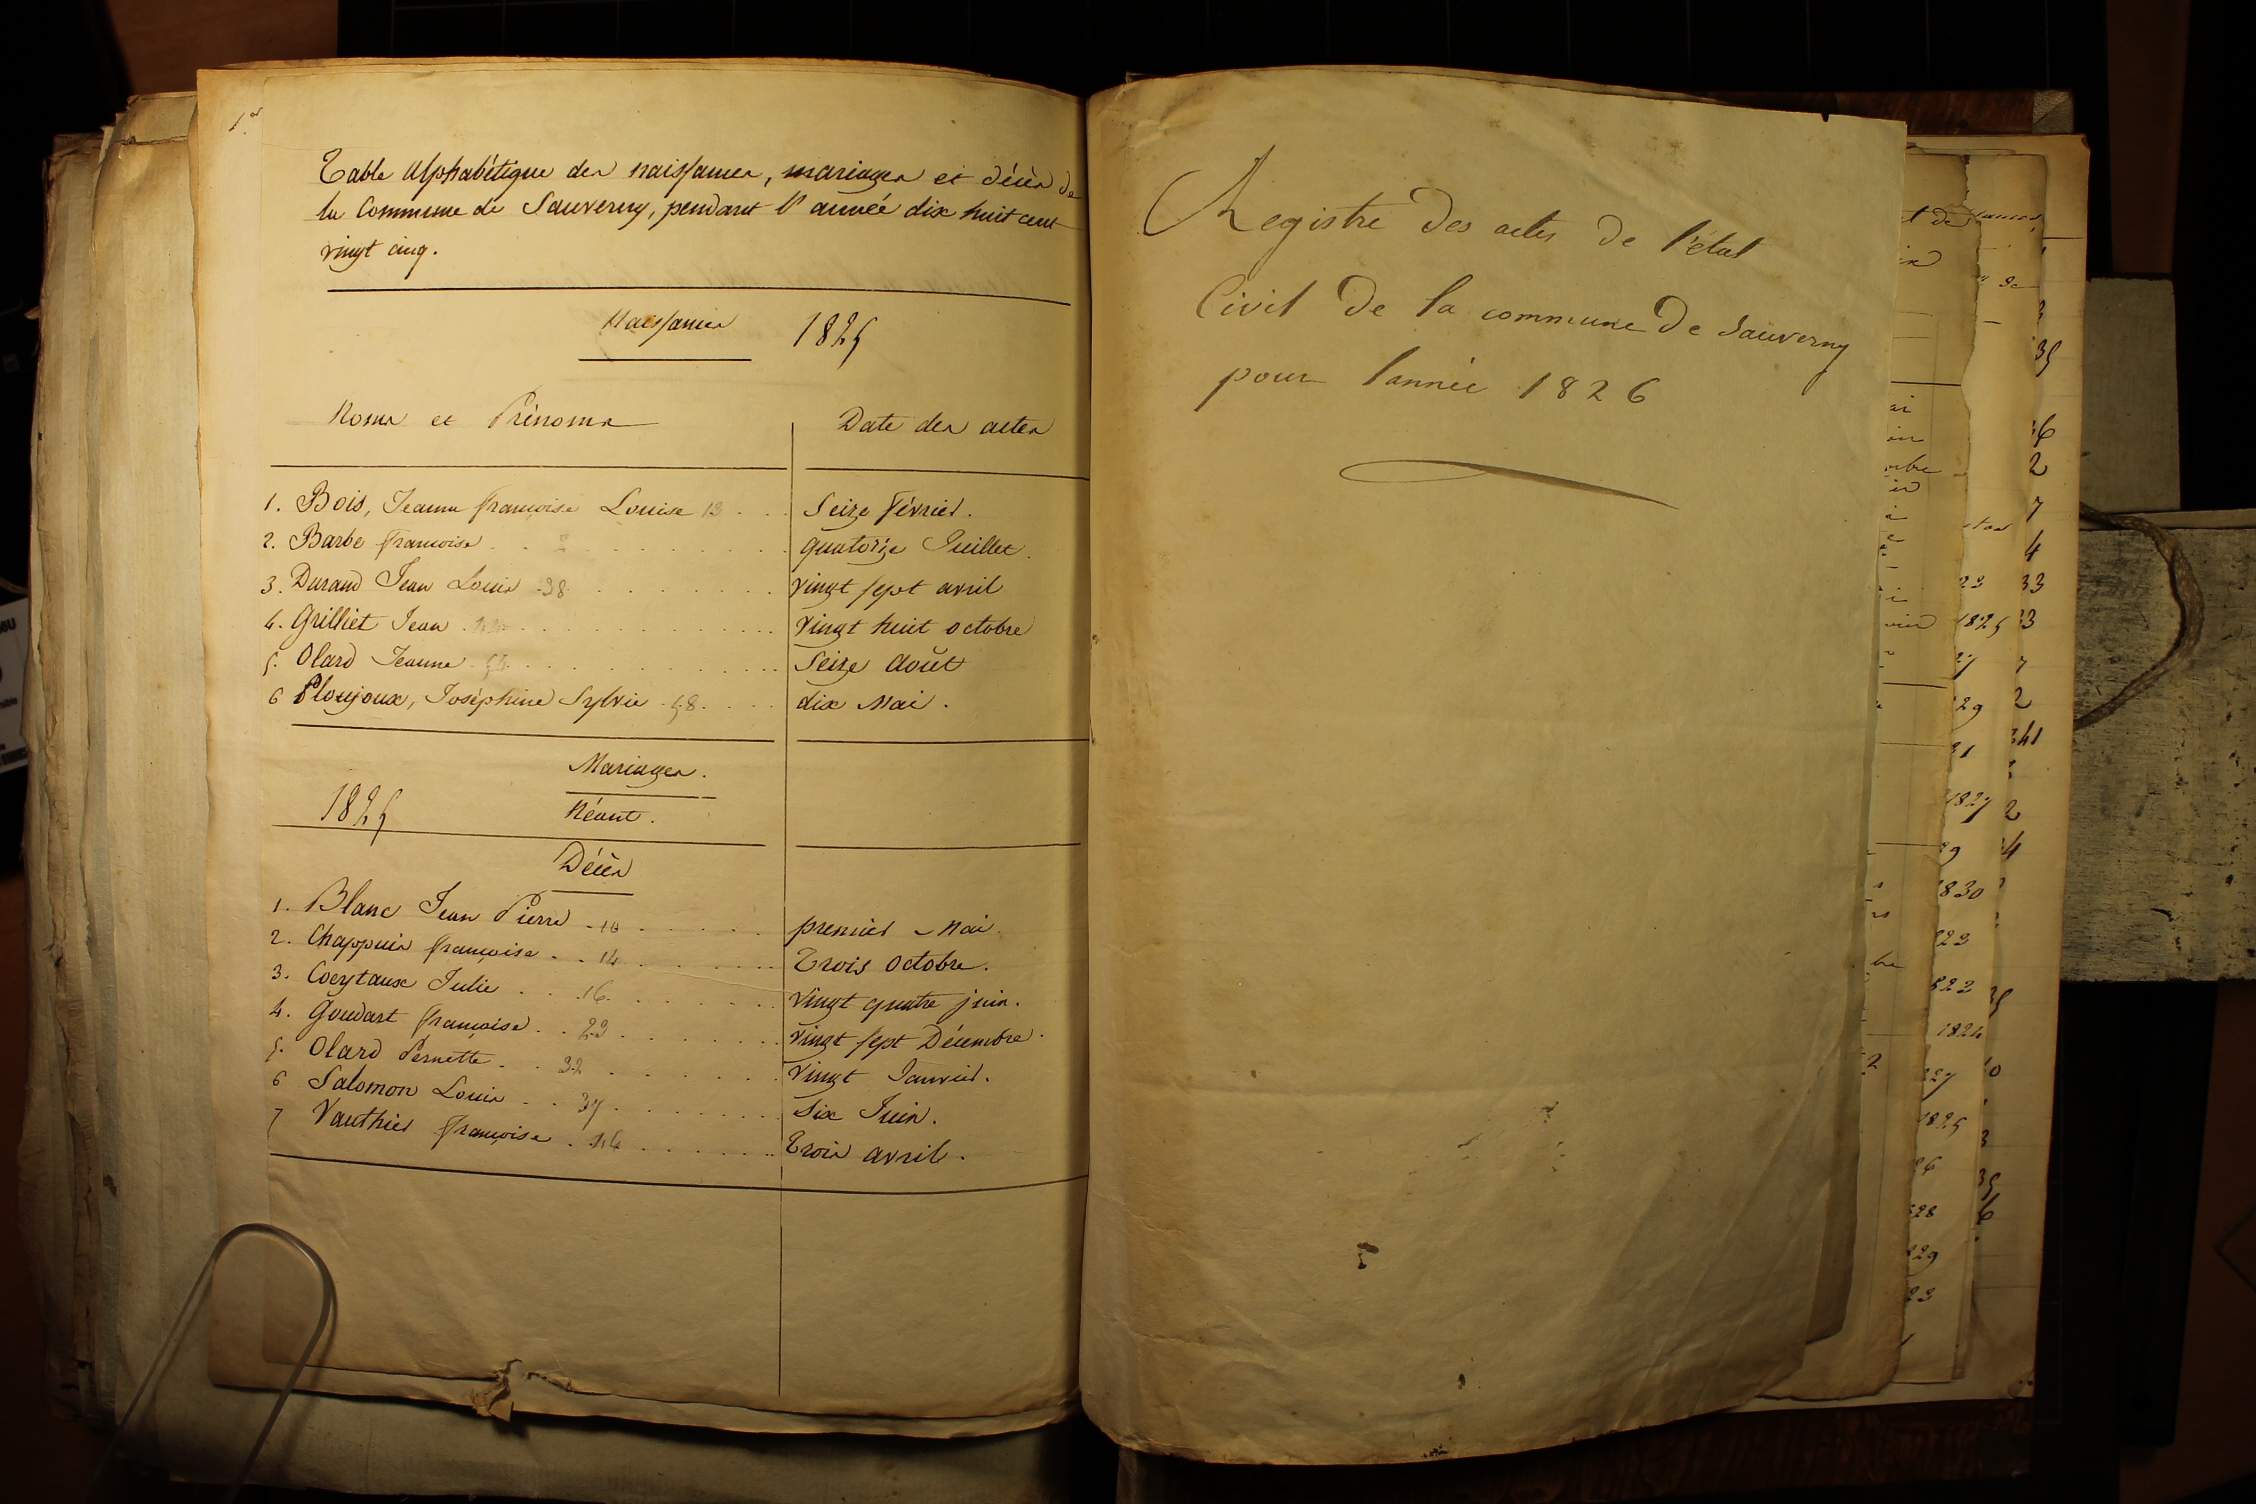 Table Alphabétique des naissances, mariages et décès de
la Commune de Sauverny, pendant l'année dix huit cent
vingt cinq.
Naissances 1825
Noms et Prénoms Date des actes
1. Bois, Jeanne françoise Louise 13 Seize février.
2. Barbe françoise 2 quatorze Juillet.
3. Durand Jean Louis 38 vingt sept avril
4. Grilliet Jean vingt huit octobre
5. Olard Jeanne Seize Août
6 Ploujoux, Joséphine Sylvie 58 dix Mai.
Mariages.
1825 Néant.
Décès
1. Blanc Jean Pierre 10 premier Mai.
2. Chappuis françoise 14 Trois Octobre.
3. Coeytaux Julie 16 vingt quatre juin.
4. Goudart françoise 23 vingt sept Décembre.
5. Olard Pernette 32 vingt Janvier.
6 Salomon Louis 37 Six Juin.
7 Vauthier françoise Trois avril.
Registre des actes de l'état
Civil de la commune de Sauverny
pour l'année 1826